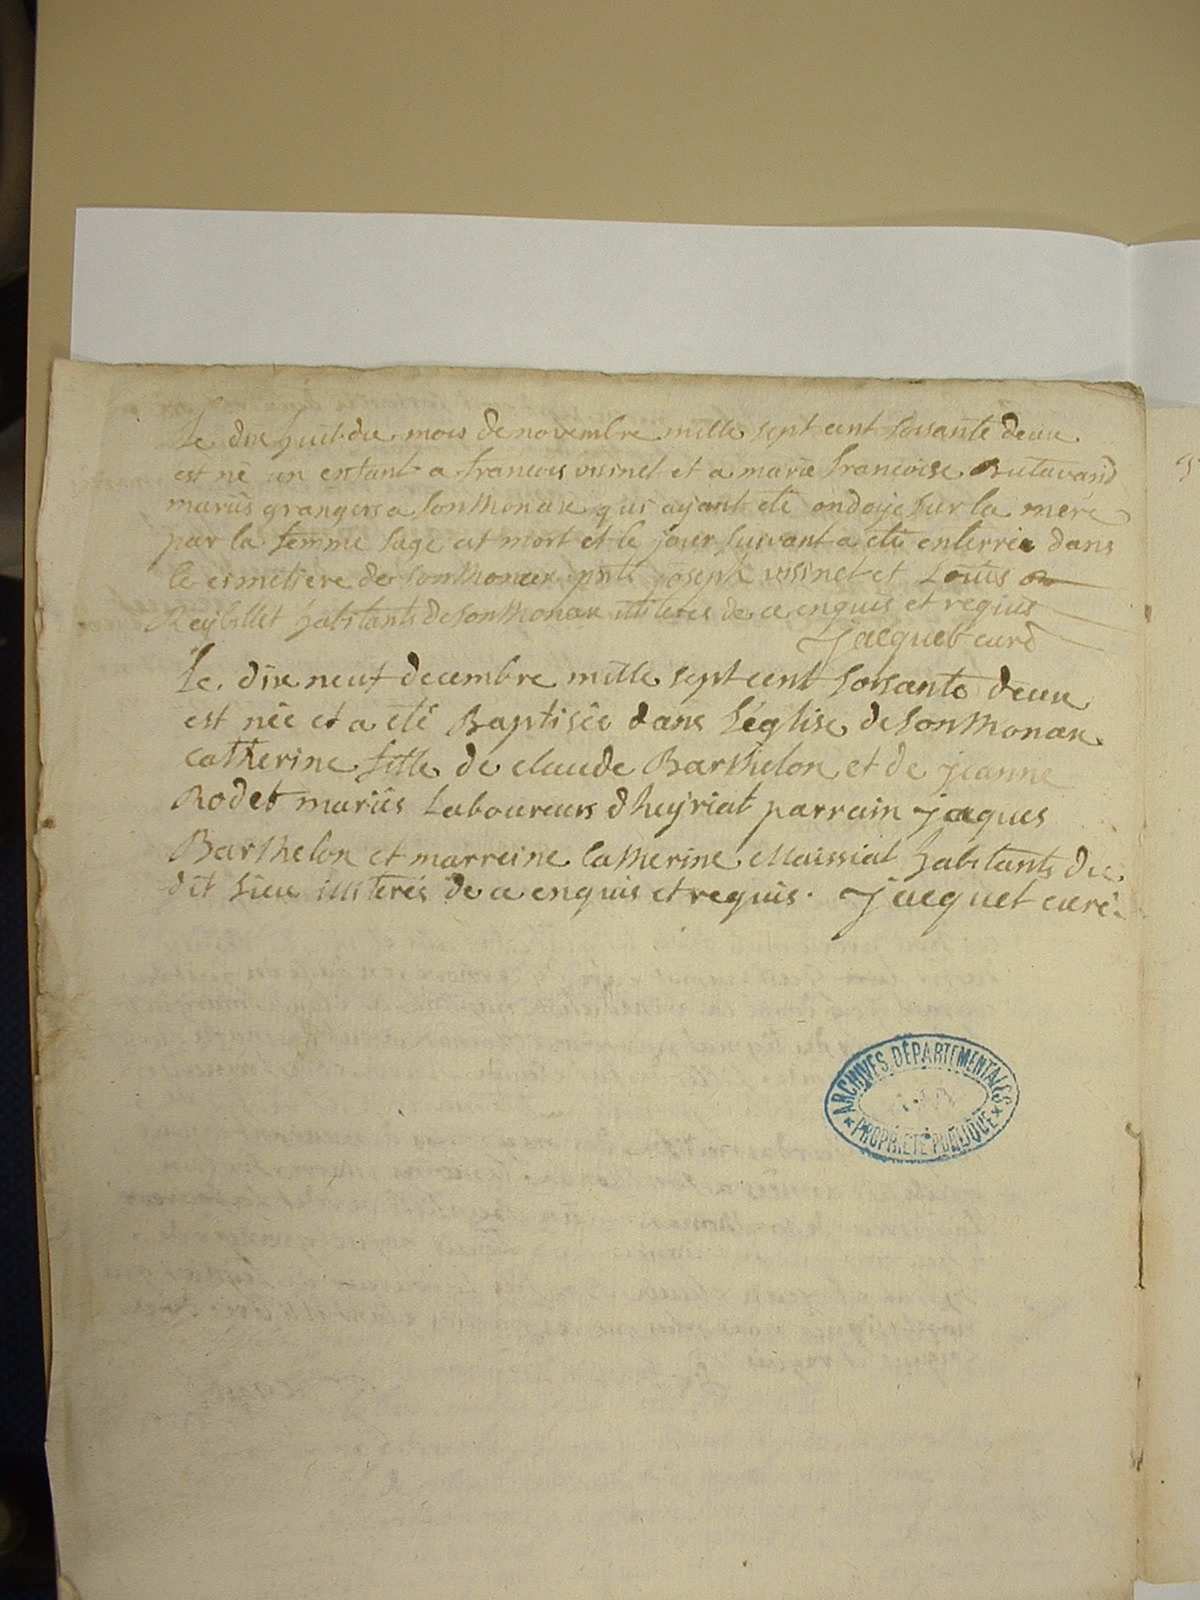 Le dix huit du mois de novembre mille sept cent soisante deux
est né un enfant a francois voisinet et a marie francoise Butavand
mariés grangers a sonthonax qui ayant eté ondoyé sur la mere
par la femme sage est mort et le jour suivant a eté enterré dans
le cimetiere de sonthonax pnts joseph voisinet et Louis
Reybillet habitants de sonthonax illiteres de ce enquis et requis
Jacquet curé
Le dix neuf decembre mille sept cent soisante deux
est née et a eté Baptisée dans l'église de sonthonax
catherine fille de claude Barthelon et de jeanne
Rodet mariés Laboureurs d'heyriat parrain jaques
Barthelon et marreine catherine Maissiat habitants du
dit lieu illiterés de ce enquis et requis. Jacquet curé
ARCHIVES DÉPARTEMENTALES
PROPRIÉTÉ PUBLIQUE